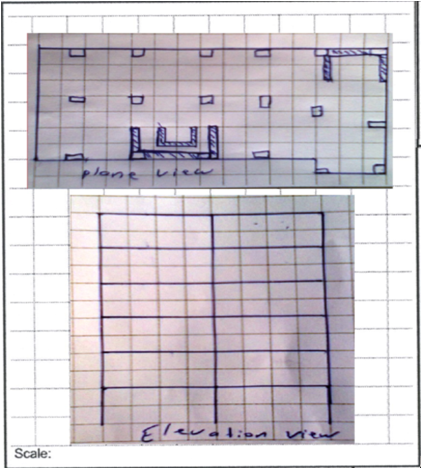 plane view
Elevation view
Scale: